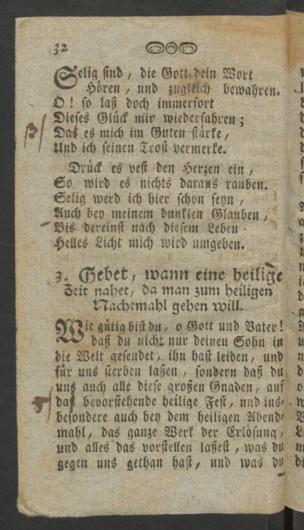 32
Selig sind, die Gott dein Wort
Hören, und zugleich bewahren.
O! so laß doch immerfort
Dieses Glück mir wiederfahren;
Daß es mich im Guten stärke,
Und ich seinen Trost vermerke.
Drück es vest den Herzen ein,
So wird es nichts daraus rauben.
Selig werd ich hier schon seyn,
Auch bey meinem dunklen Glauben,
Bis dereinst nach diesem Leben
Helles Licht mich wird umgeben.
3. Gebet, wann eine heilige
Zeit nahet, da man zum heiligen
Nachtmahl gehen will.
Wie gütig bist du, o Gott und Vater!
daß du nicht nur deinen Sohn in
die Welt gesendet, ihn hast leiden, und
für uns sterben laßen, sondern daß du
uns auch alle diese großen Gnaden, auf
das bevorstehende heilige Fest, und ins-
besondere auch bey dem heiligen Abend-
mahl, das ganze Werk der Erlösung,
und alles das vorstellen laßest, was du
gegen uns gethan hast, und was du